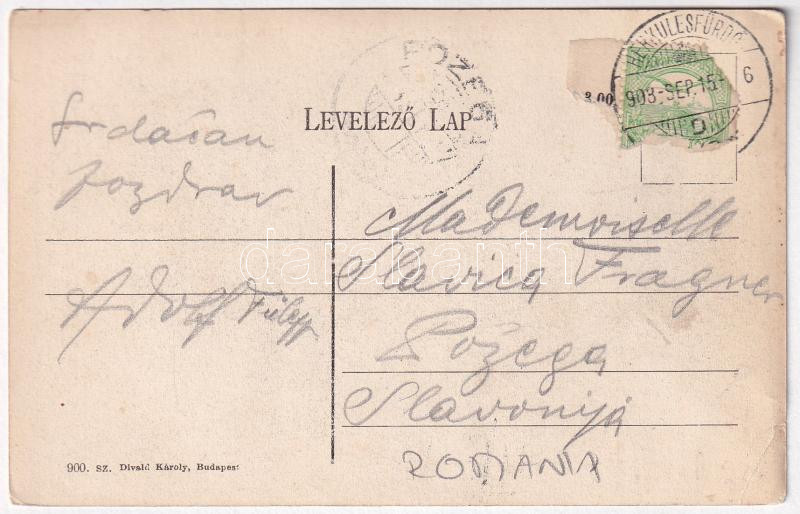 POZEGA
HERKULESFÜRDŐ
908-SEP.15
6
LEVELEZŐ LAP
Srdačan
pozdrav
Adolf Fülepp
Mademoiselle
Slavica Fragner
Požega
Slavonija
ROMANIA
900. sz. Divald Károly, Budapest
darabanth